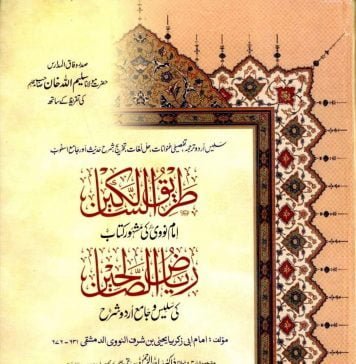 صدر وفاق المدارس
حضرت مولانا سلیم اللہ خان
کی تقریظ کے ساتھ
سلیس اردو ترجمہ، تفصیلی عنوانات، حل لغات، تخریج، شرح حدیث اور جامع اسلوب
طریق السالکین
امام نووی کی مشہور کتاب
ریاض الصالحین
کی سلیس و جامع اردو شرح
مؤلف: امام ابی زکریا یحییٰ بن شرف النووی الدمشقی ۶۳۱-۶۷۶